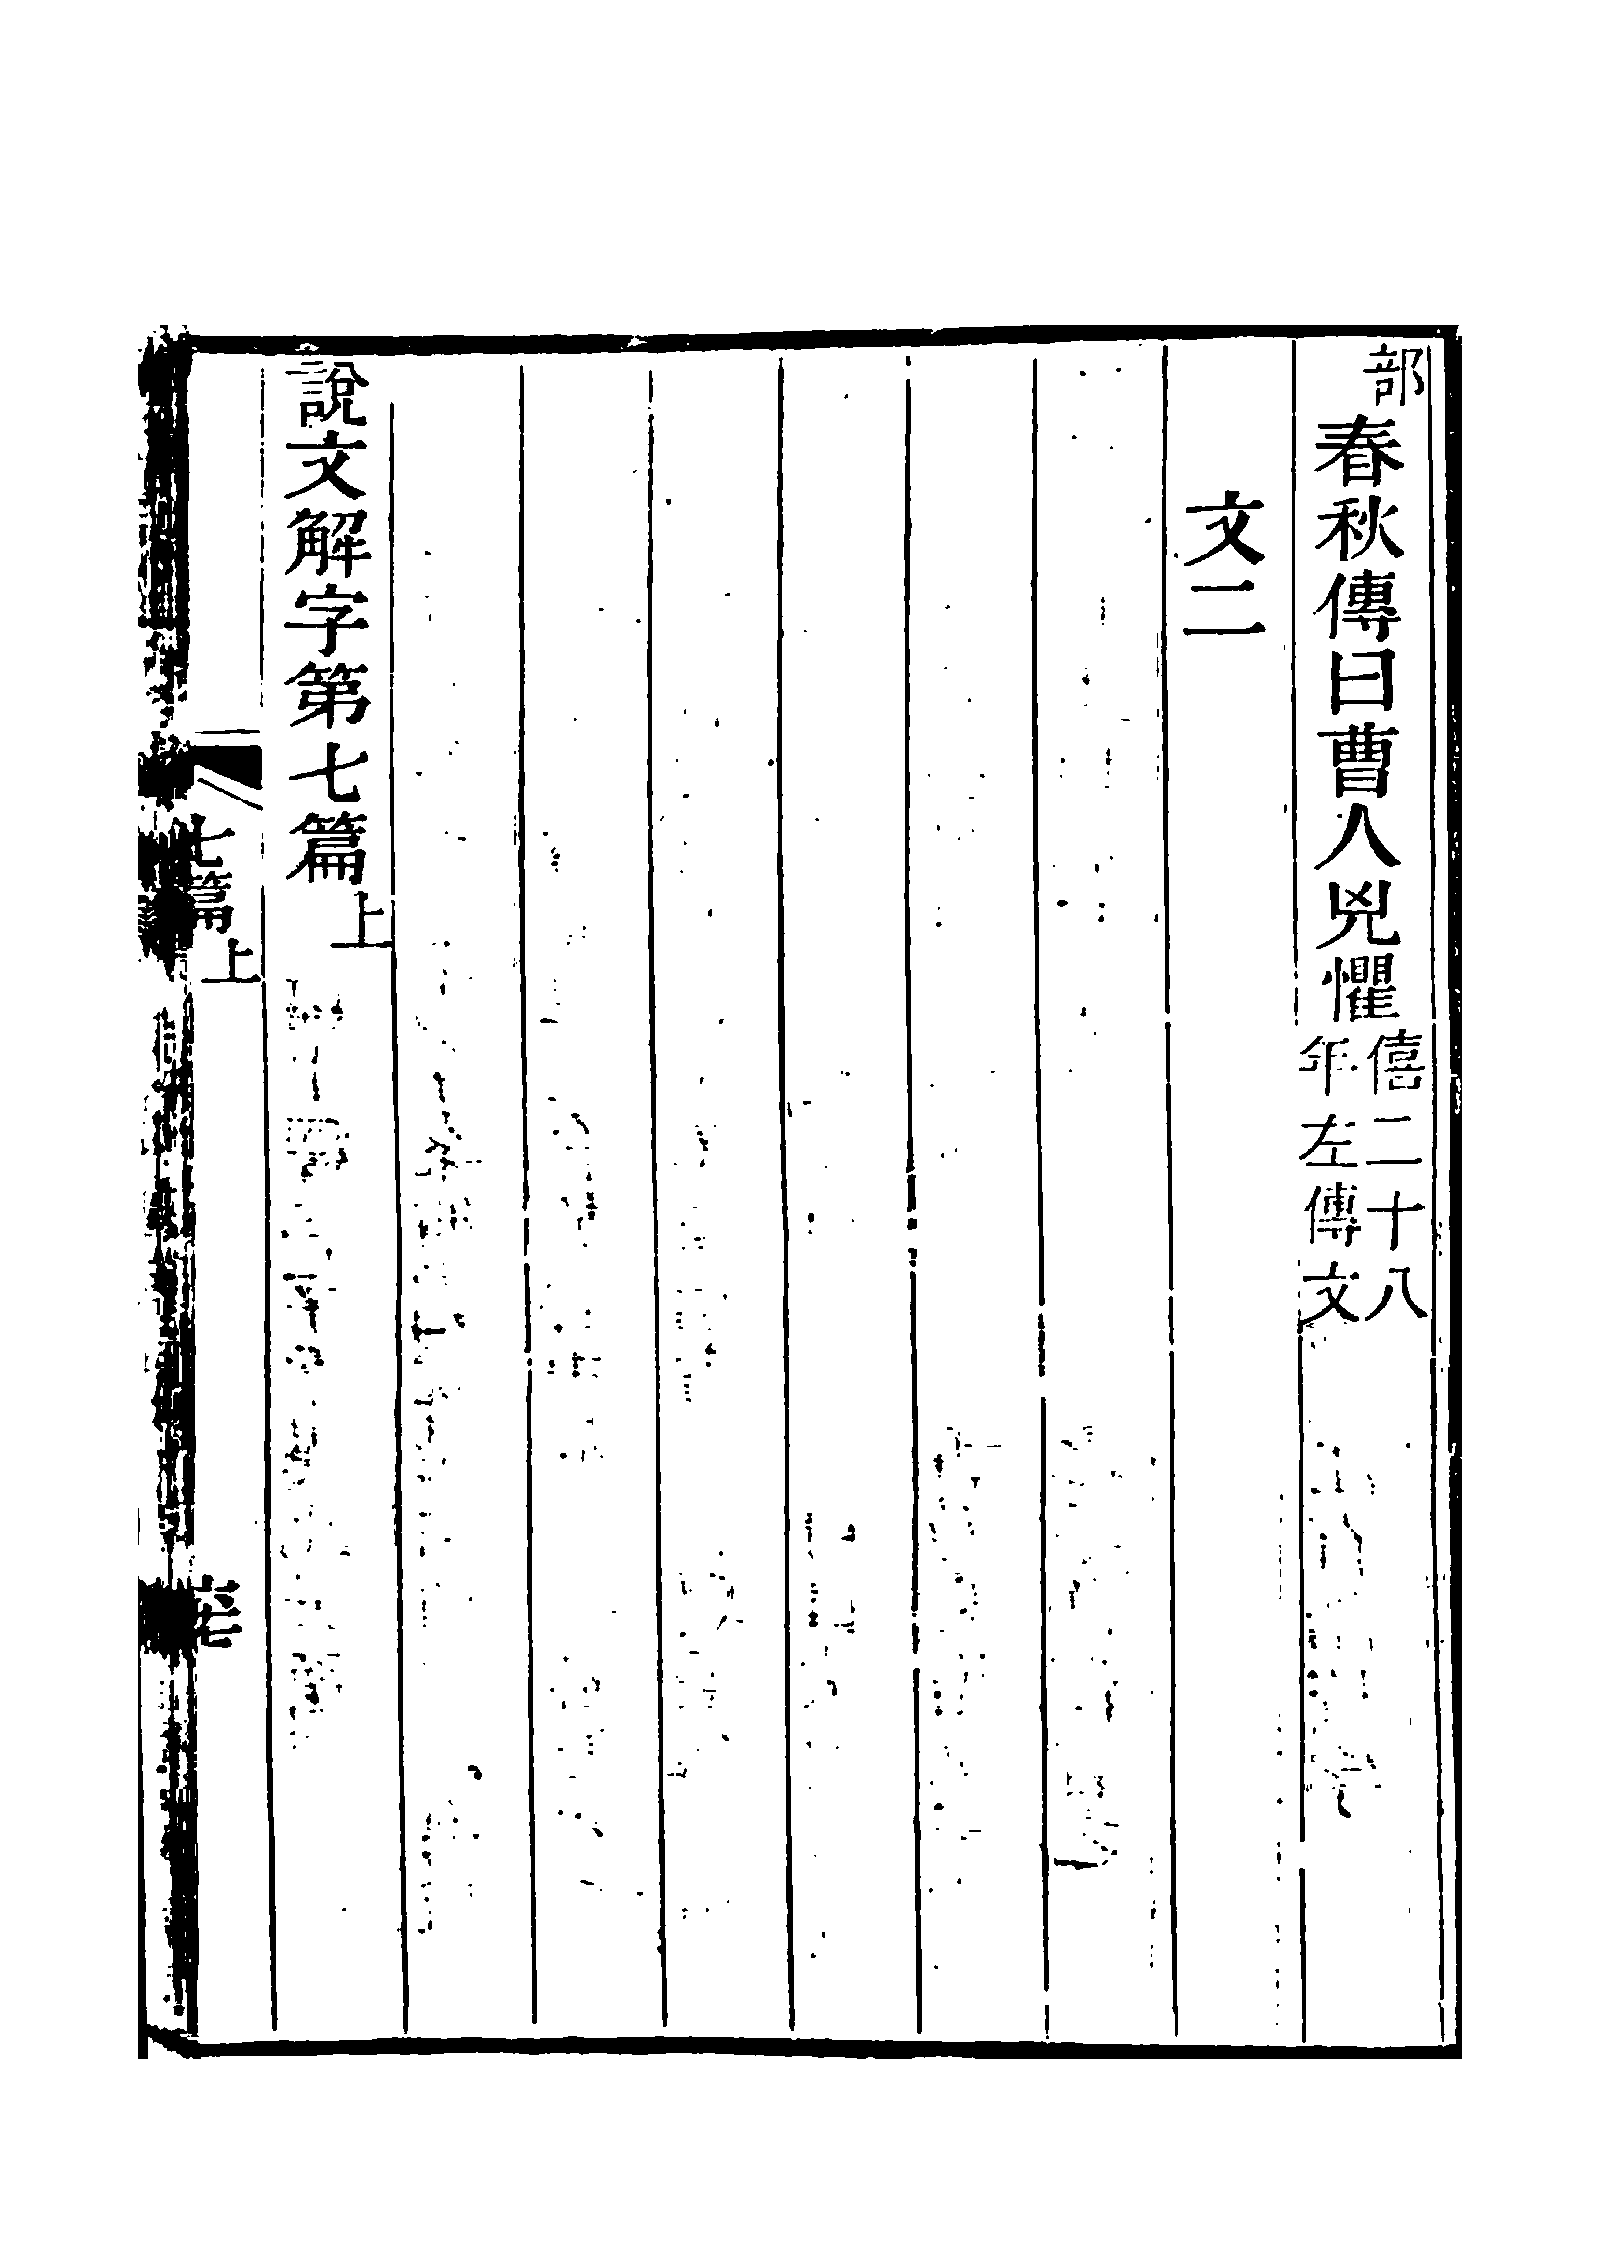 部春秋傳曰曹人兇懼僖二十八年左傳文
文二
說文解字第七篇上
七篇上